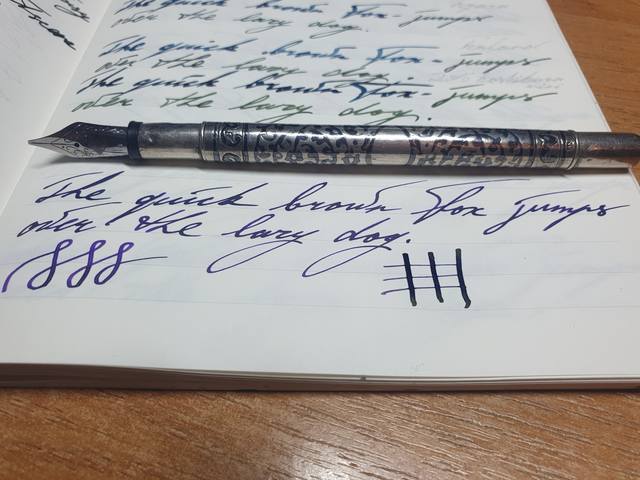 The quick brown fox - jumps
over the lazy dog.
The quick brown fox - jumps
over the lazy dog.
The quick brown fox - jumps
over the lazy dog.
The quick brown fox jumps
over the lazy dog.